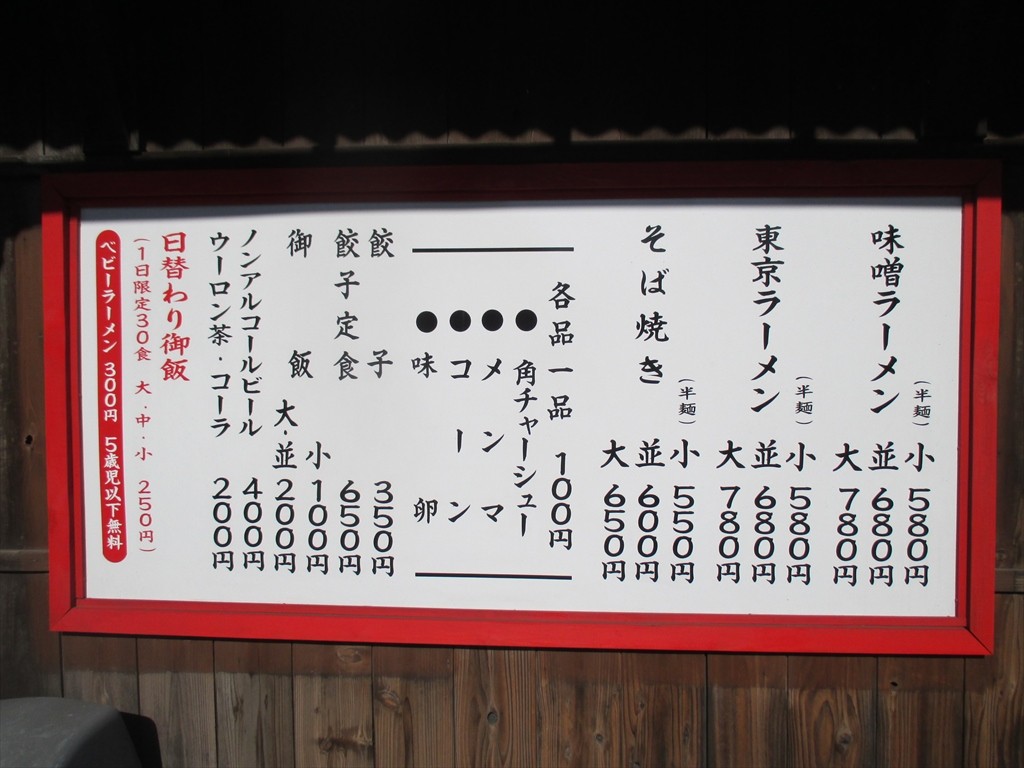 味噌ラーメン
（半麺）小 580円
並 680円
大 780円
東京ラーメン
（半麺）小 580円
並 680円
大 780円
そば焼き
（半麺）小 550円
並 600円
大 650円
各品一品 100円
●角チャーシュー
●メンマ
●コーン
●味卵
餃子 350円
餃子定食 650円
御飯 小 100円
大・並 200円
ノンアルコールビール 400円
ウーロン茶・コーラ 200円
日替わり御飯
（1日限定30食 大・中・小 250円）
ベビーラーメン 300円 5歳児以下無料